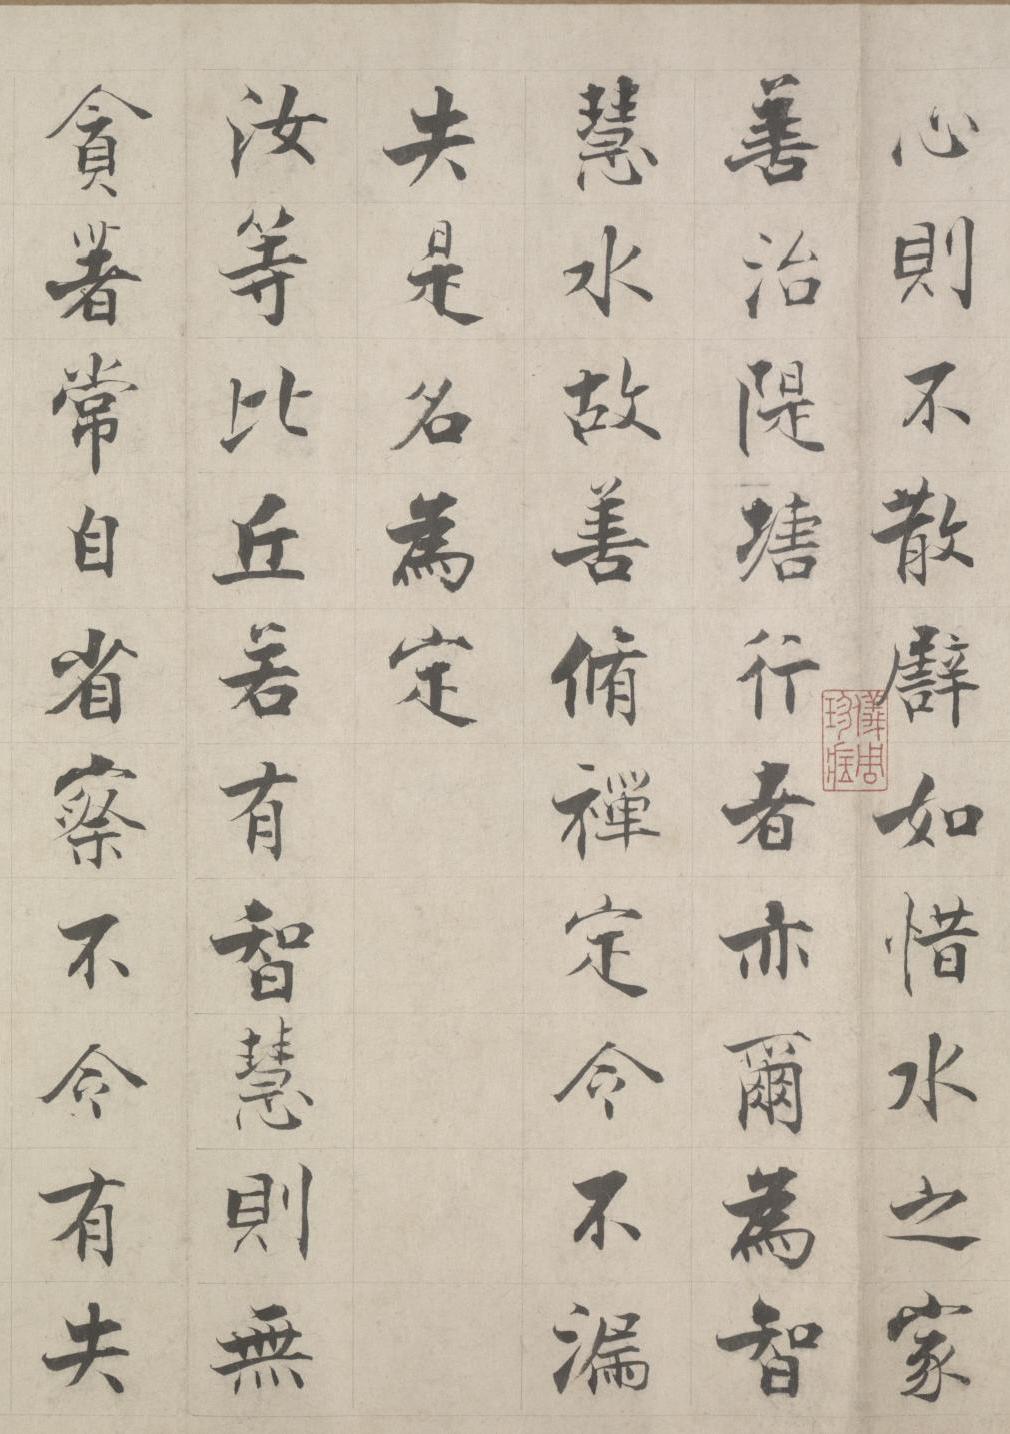 心則不散譬如惜水之家
善治隄塘行者亦爾為智
慧水故善脩禪定令不漏
失是名為定
汝等比丘若有智慧則無
貪著常自省察不令有失
儀周珍藏